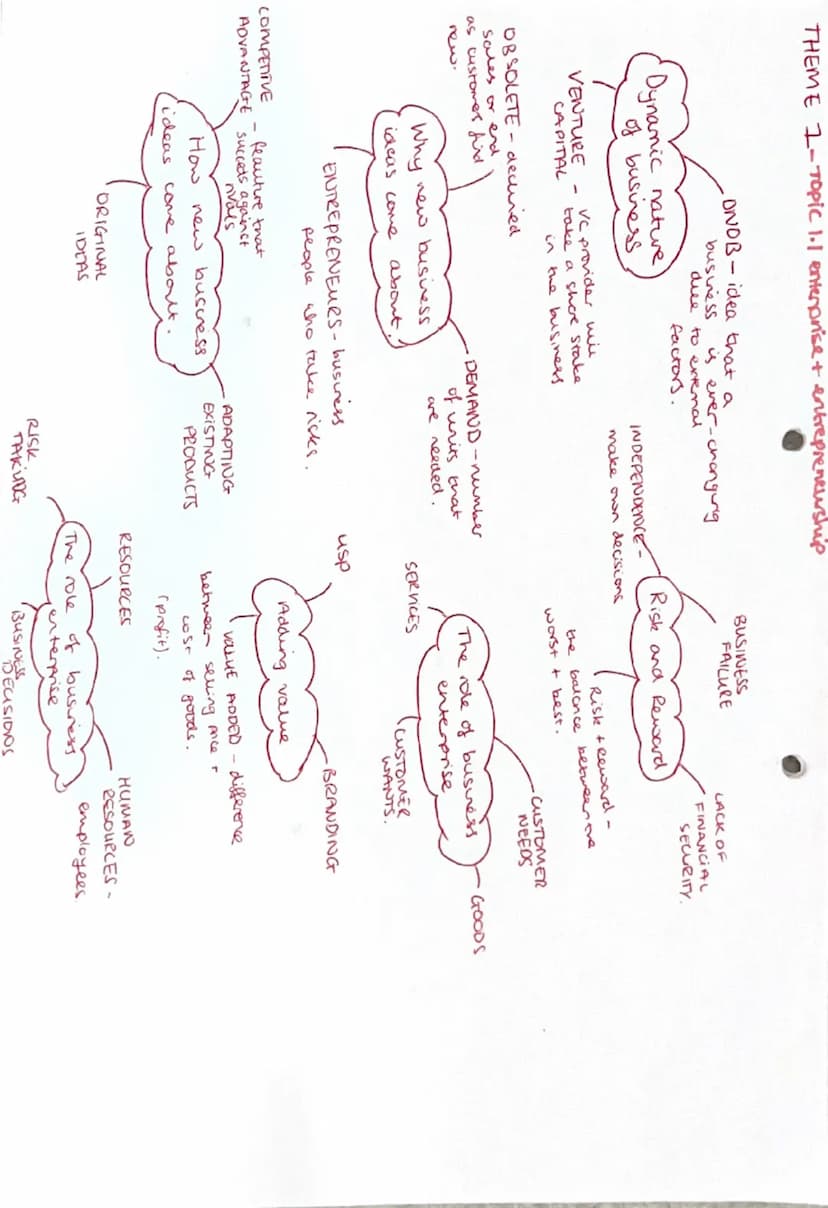 THEME 1 - TOPIC 1.1 enterprise + entrepreneurship
Dynamic nature
of business
DNOB - idea that a
business is ever-changing
due to external
factors.
VENTURE - VC provider will
CAPITAL take a share stake
in the business
Risk and Reward
INDEPENDENCE -
make own decisions
BUSINESS
FAILURE
LACK OF
FINANCIAL
SECURITY.
Risk + reward -
the balance between the
worst + best.
Why new business
ideas come about.
OBSOLETE - declined
sales or end
as customers find
new.
DEMAND - number
of units that
are needed.
ENTREPRENEURS - business
people who take risks.
The role of business
enterprise
SERVICES
CUSTOMER
NEEDS
GOODS
CUSTOMER
WANTS.
How new business
ideas come about.
COMPETITIVE
ADVANTAGE - feauture that
succeeds against
rivals
ORIGINAL
IDEAS
ADAPTING
EXISTING
PRODUCTS
Adding value
USP
BRANDING
VALUE ADDED - difference
between selling price +
cost of goods.
(profit).
The role of business
enterprise
RISK
TAKING
RESOURCES
HUMAN
RESOURCES -
employees
BUSINESS
DECISIONS